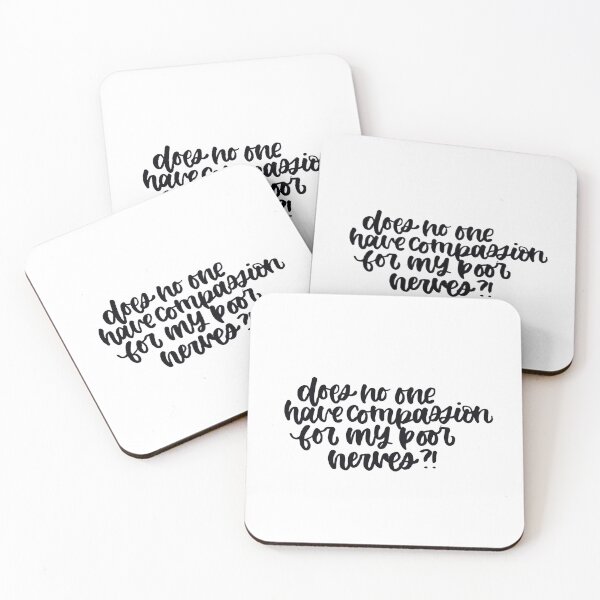 does no one
have compassio
poor
?!
does no one
have compassion
for my poor
nerves?!
does no one
have compassion
for my poor
nerves?!
does no one
have compassion
for my poor
nerves?!